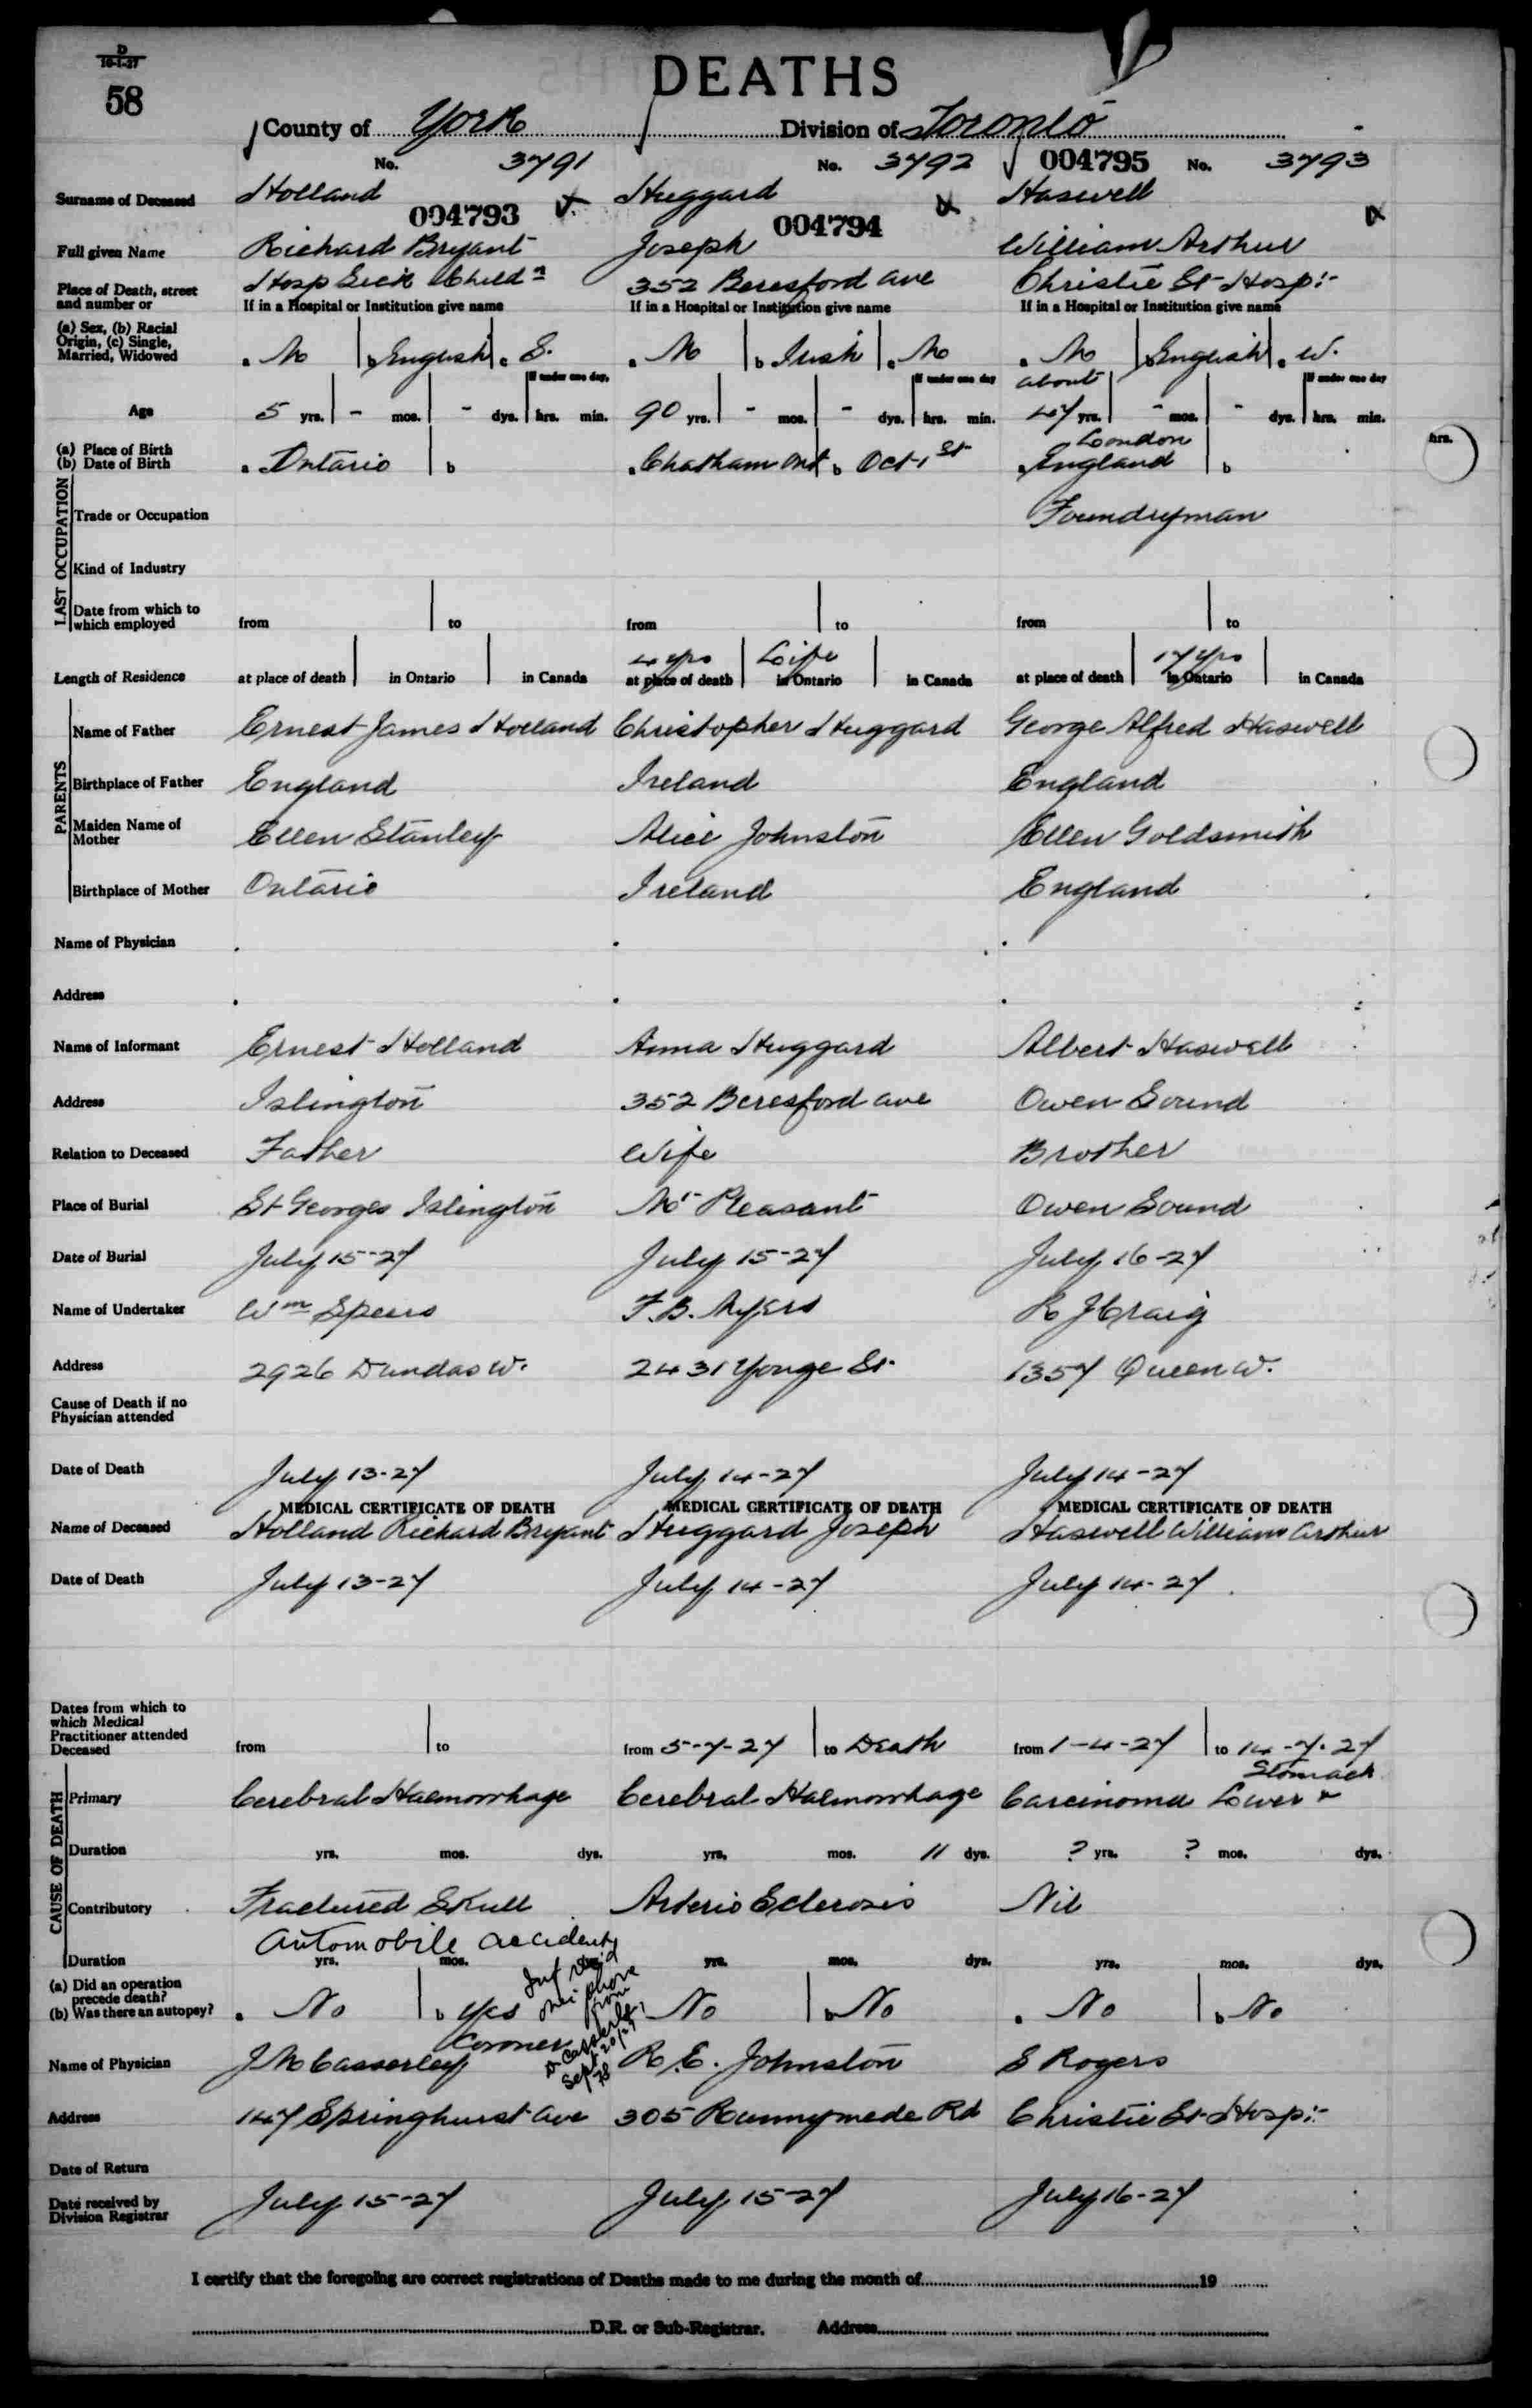 D
10-1-27
58
DEATHS
County of York Division of Toronto
No. 3791 No. 3792 004795 No. 3793
Surname of Deceased Holland Huggard Haswell
004793 004794
Full given Name Richard Bryant Joseph William Arthur
Place of Death, street and number or Hosp Sick Childn 352 Beresford Ave Christie St Hosp:-
If in a Hospital or Institution give name If in a Hospital or Institution give name If in a Hospital or Institution give name
(a) Sex, (b) Racial Origin, (c) Single, Married, Widowed a M b English c S. a M b Irish c M a M b English c W.
If under one day, If under one day about If under one day
Age 5 yrs. - mos. - dys. hrs. min. 90 yrs. - mos. - dys. hrs. min. 47 yrs. - mos. - dys. hrs. min.
London
(a) Place of Birth (b) Date of Birth a Ontario b a Chatham Ont b Oct 1st a England b
hrs.
LAST OCCUPATION
Trade or Occupation Foundryman
Kind of Industry
Date from which to which employed from to from to from to
4 yrs Life 17 yrs
Length of Residence at place of death in Ontario in Canada at place of death in Ontario in Canada at place of death in Ontario in Canada
PARENTS
Name of Father Ernest James Holland Christopher Huggard George Alfred Haswell
Birthplace of Father England Ireland England
Maiden Name of Mother Ellen Stanley Alice Johnston Ellen Goldsmith
Birthplace of Mother Ontario Ireland England
Name of Physician
Address
Name of Informant Ernest Holland Anna Huggard Albert Haswell
Address Islington 352 Beresford Ave Owen Sound
Relation to Deceased Father Wife Brother
Place of Burial St Georges Islington Mt Pleasant Owen Sound
Date of Burial July 15-27 July 15-27 July 16-27
Name of Undertaker Wm Speers F.B. Myers R J Craig
Address 2926 Dundas W. 2431 Yonge St. 1357 Queen W.
Cause of Death if no Physician attended
Date of Death July 13-27 July 14-27 July 14-27
MEDICAL CERTIFICATE OF DEATH MEDICAL CERTIFICATE OF DEATH MEDICAL CERTIFICATE OF DEATH
Name of Deceased Holland Richard Bryant Huggard Joseph Haswell William Arthur
Date of Death July 13-27 July 14-27 July 14-27
Dates from which to which Medical Practitioner attended Deceased from to from 5-7-27 to Death from 1-4-27 to 14-7-27
Stomach
CAUSE OF DEATH
Primary Cerebral Haemorrhage Cerebral Haemorrhage Carcinoma Lower &
Duration yrs. mos. dys. yrs. mos. 11 dys. ? yrs. ? mos. dys.
Contributory Fractured Skull Arterio Sclerosis Nil
Automobile accident
Duration yrs. mos. yrs. mos. dys. yrs. mos. dys.
Inf phone from Dr Casserley Sept 20/27
(a) Did an operation precede death? (b) Was there an autopsy? a No b Yes No b No a No b No
Coroner
Name of Physician J M Casserley R.E. Johnston S Rogers
Address 147 Springhurst Ave 305 Runnymede Rd Christie St Hosp:-
Date of Return
Date received by Division Registrar July 15-27 July 15-27 July 16-27
I certify that the foregoing are correct registrations of Deaths made to me during the month of 19
D.R. or Sub-Registrar. Address